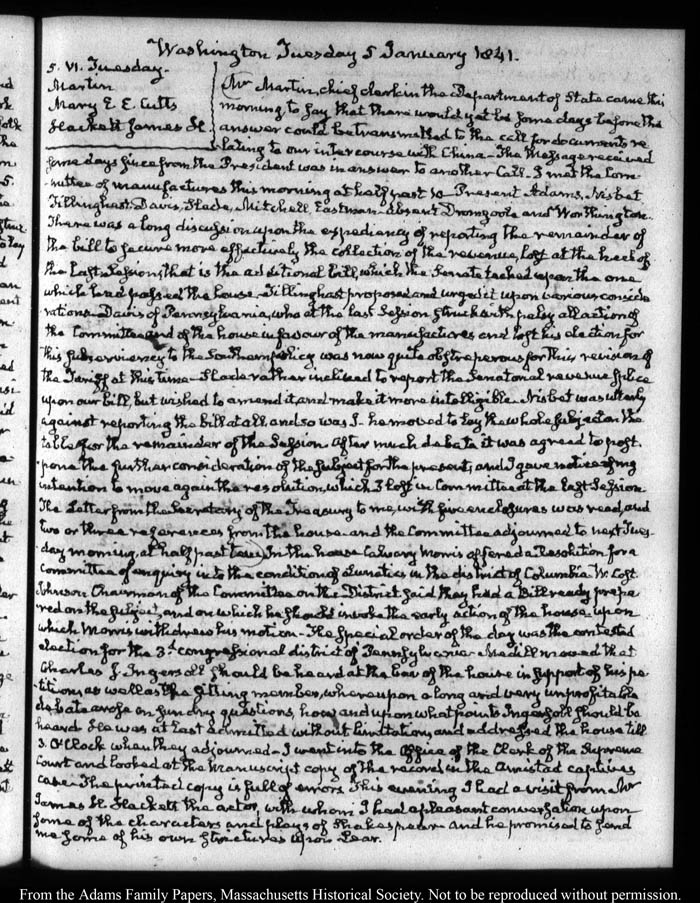 Washington Tuesday 5 January 1841.
5. VI. Tuesday.
Martin
Mary E. E. Cutts
Hackett James H.
Mr Martin, chief clerk in the Department of State came this
morning to say that there would yet be some days before the
answer could be transmitted to the call for documents re
lating to our intercourse with China - The Message received
some days since from the President was in answer to another Call. I met the Com-
mittee of manufactures this morning at half past 10 - Present Adams, Nisbet
Tillinghast, Davis, Slade, Mitchell, Eastman - absent Dromgoole and Worthington.
There was a long discussion upon the expediency of reporting the remainder of
the bill to secure more effectively the collection of the revenue, lost at the heel of
the last Session, that is the additional bill, which the Senate tacked upon the one
which had passed the house. Tillinghast proposed and urged it upon various conside
rations - Davis of Pennsylvania, who at the last Session struck with palsy all action of
the Committee and of the house in favour of the manufactures and lost his election for
this subserviency to the Southern policy was now quite obstreperous for this revision of
the Tariff at this time - Slade rather inclined to report the Senatorial revenue splice
upon our bill, but wished to amend it, and make it more intelligible. Nisbet was utterly
against reporting the bill at all, and so was I - he moved to lay the whole subject on the
table for the remainder of the Session. After much debate it was agreed to post
pone the further consideration of the subject for the present, and I gave notice of my
intention to move again the resolution, which I lost in Committee at the last Session
The Letter from the Secretary of the Treasury to me, with five enclosures was read, and
two or three references from the house - and the Committee adjourned to next Tues-
day morning, at half past ten. In the house Calvary Morris offered a Resolution for a
Committee of enquiry into the condition of Lunatics in the district of Columbia W. Cost
Johnson Chairman of the Committee on the District said they had a Bill ready prepa
red on the subject, and on which he should invoke the early action of the house, upon
which Morris withdrew his motion - The special order of the day was the contested
election for the 3d congressional district of Pennsylvania - Medill moved that
Charles J. Ingersoll should be heard at the bar of the house in support of his pe
tition, as well as the sitting member, whereupon a long and very unprofitable
debate arose on sundry questions, how, and upon what points Ingersoll should be
heard He was at last admitted without limitation, and addressed the house till
3. O'Clock when they adjourned - I went into the Office of the Clerk of the Supreme
Court and looked at the manuscript copy of the record, in the Amistad captives
case - The printed copy is full of errors. This evening I had a visit from Mr
James H. Hackett the actor, with whom I had a pleasant conversation upon
some of the characters and plays of Shakespear - and he promised to send
me some of his own strictures upon Lear.
From the Adams Family Papers, Massachusetts Historical Society. Not to be reproduced without permission.